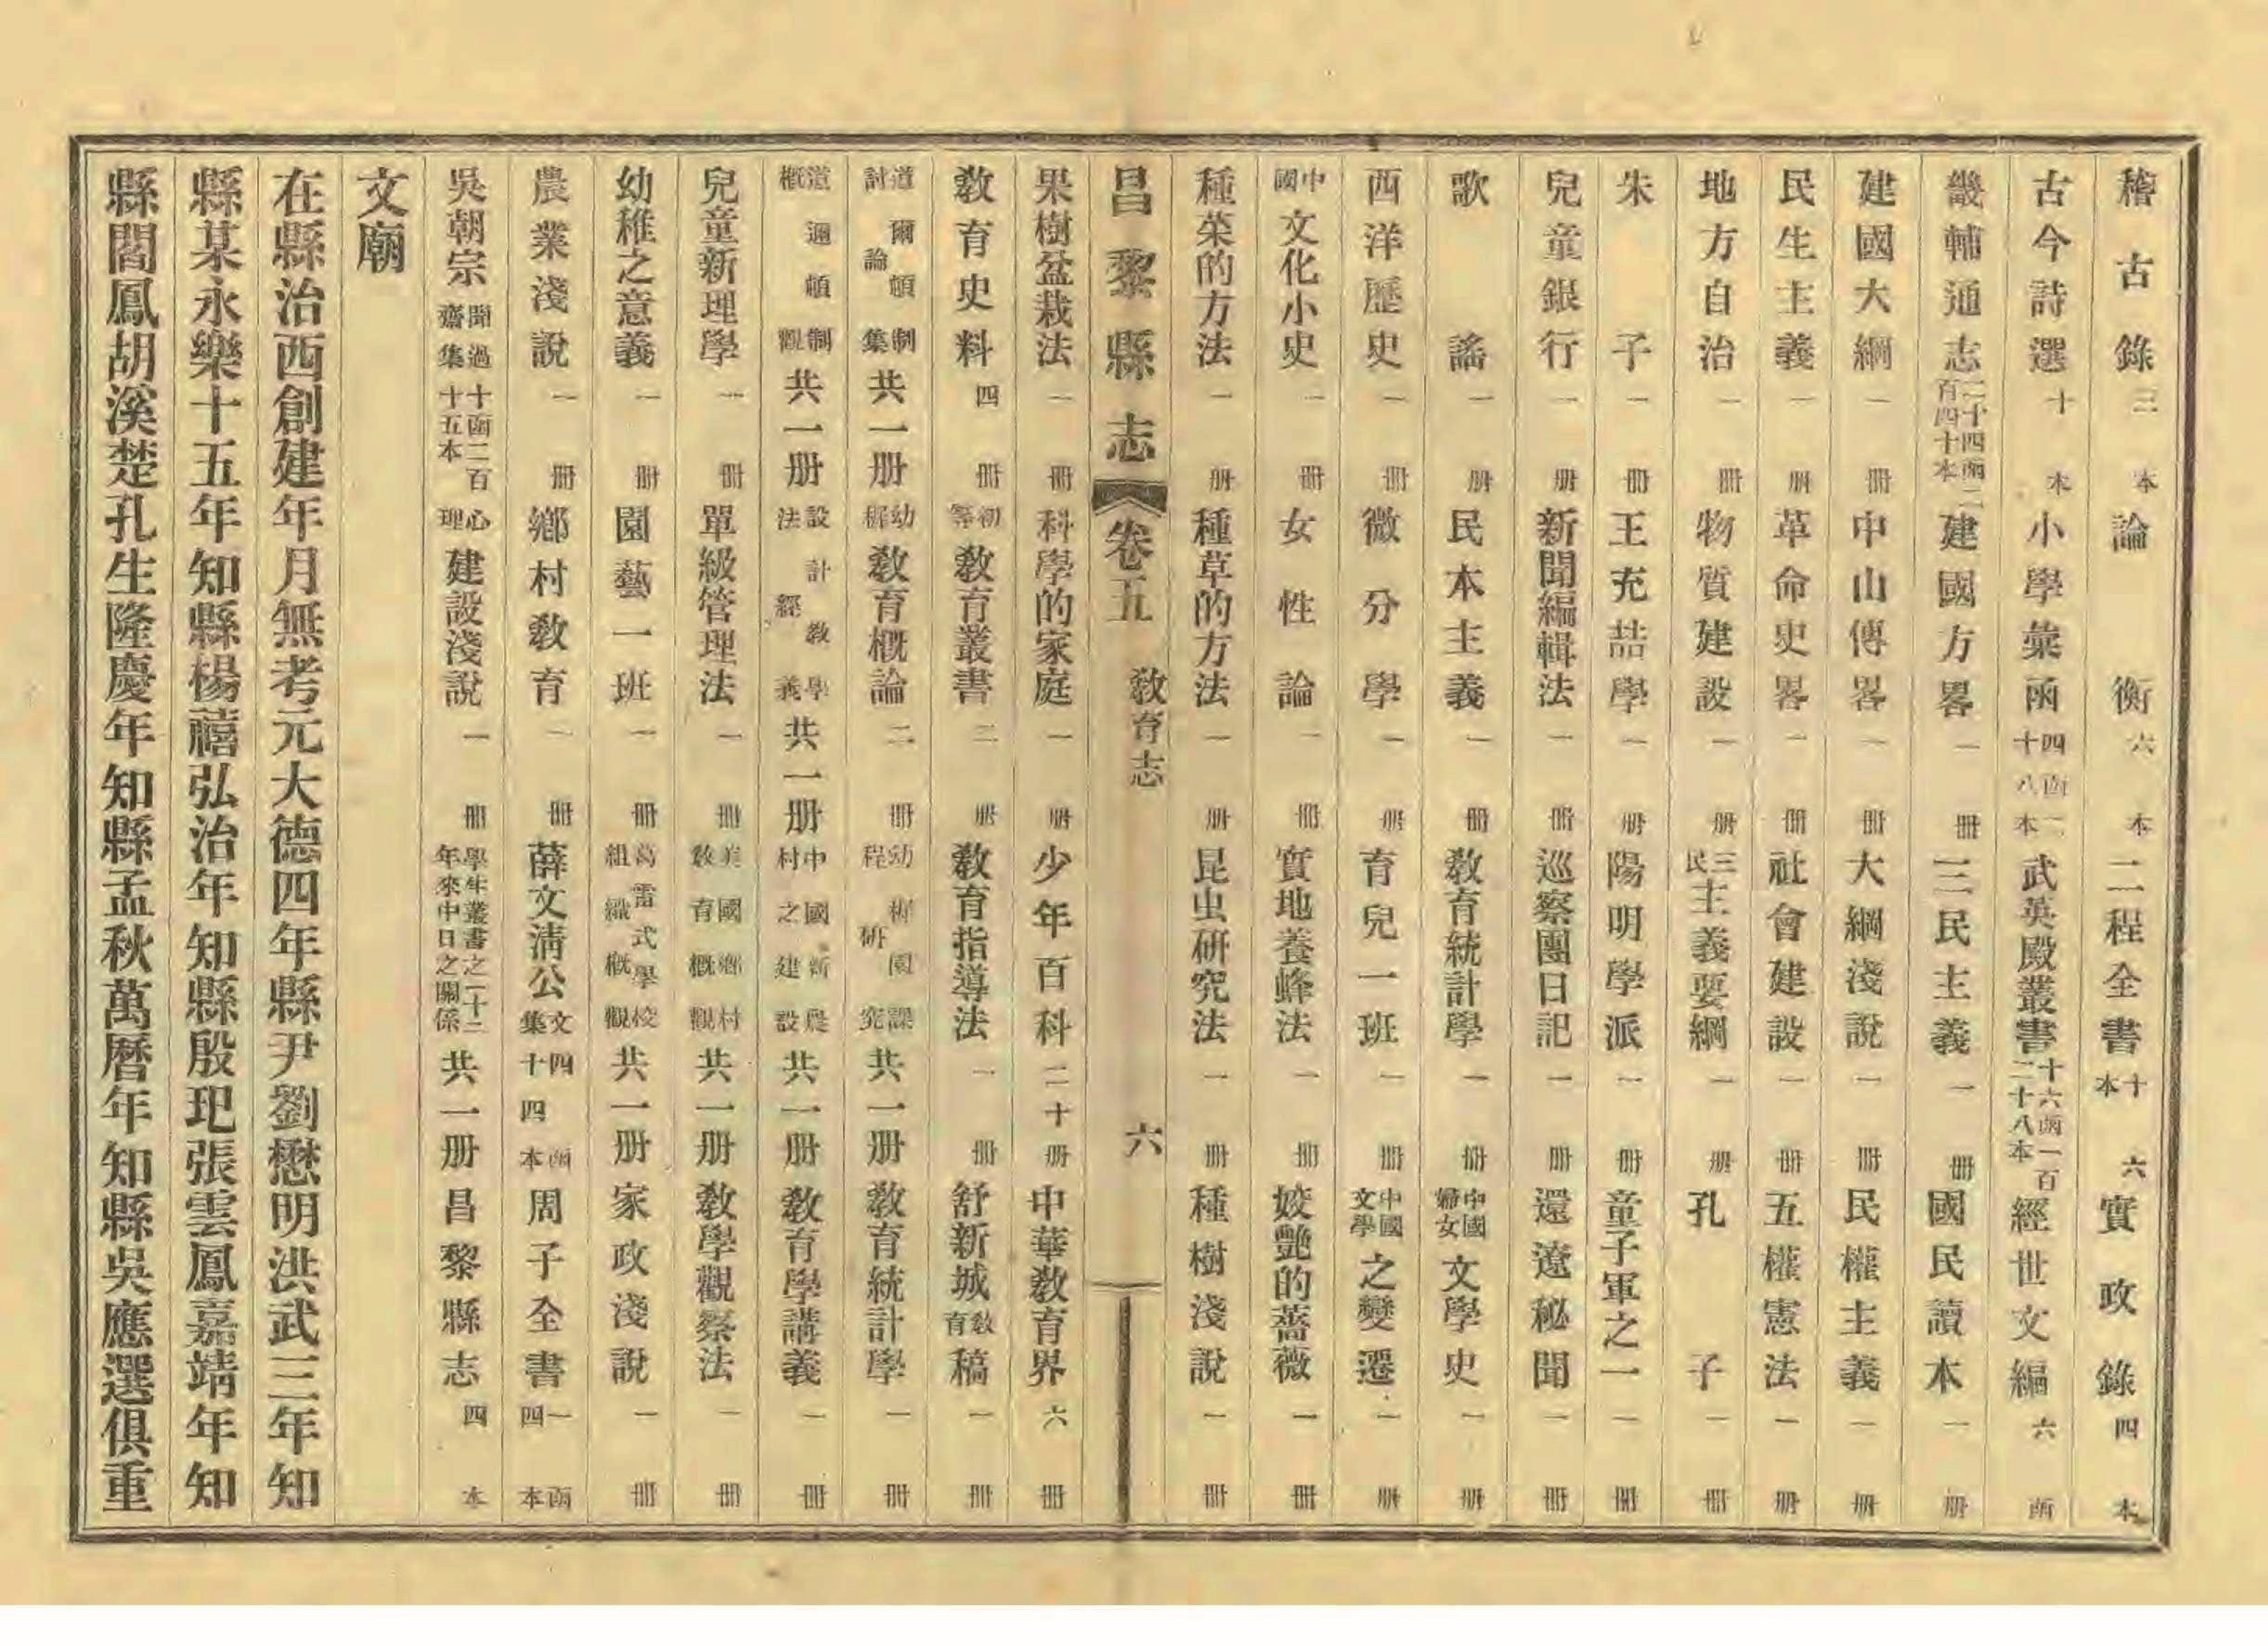 稽古錄三本論衡六本二程全書十六本實政錄四本
古今詩選十本小學彙函四函二十八本武英殿叢書十六函一百二十八本經世文編六函
畿輔通志二十四函二百四十本建國方畧一册三民主義一册國民讀本一册
建國大綱一册中山傳畧一册大綱淺說一册民權主義一册
民生主義一册革命史畧一册社會建設一册五權憲法一册
地方自治一册物質建設一册三民主義要綱一册孔子一册
朱子一册王充喆學一册陽明學派一册童子軍之一一册
兒童銀行一册新聞編輯法一册巡察團日記一册還遼秘聞一册
歌謠一册民本主義一册教育統計學一册中國婦女文學史一册
西洋歷史一册微分學一册育兒一班一册中國文學之變遷一册
中國文化小史一册女性論一册實地養蜂法一册姣艷的薔薇一册
種菜的方法一册種草的方法一册昆虫研究法一册種樹淺說一册
昌黎縣志 卷五 教育志 六
果樹盆栽法一册科學的家庭一册少年百科二十册中華教育界六册
教育史料四册初等教育叢書二册教育指導法一册舒新城教育稿一册
道爾頓制討論集共一册幼穉教育概論二册幼穉園課程研究共一册教育統計學一册
道邇頓制概觀共一册設計教學法經義共一册中國新農村之建設共一册教育學講義一册
兒童新理學一册單級管理法一册美國鄉村教育概觀共一册教學觀察法一册
幼稚之意義一册園藝一班一册葛雷式學校組織概觀共一册家政淺說一册
農業淺說一册鄉村教育一册薛文清公文集四函十四本周子全書一函四本
吳朝宗聞過齋集十函二百十五本心理建設淺說一册學生叢書之二十二年來中日之關係共一册昌黎縣志四本
文廟
在縣治西創建年月無考元大德四年縣尹劉懋明洪武三年知
縣某永樂十五年知縣楊禧弘治年知縣殷玘張雲鳳嘉靖年知
縣閻鳳胡溪楚孔生隆慶年知縣孟秋萬曆年知縣吳應選俱重